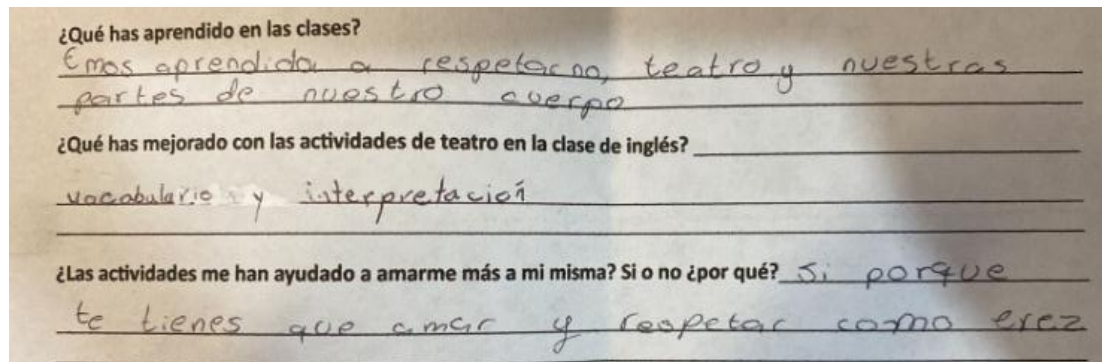 ¿Qué has aprendido en las clases?
Emos aprendido a respetarno, teatro y nuestras
partes de nuestro cuerpo
¿Qué has mejorado con las actividades de teatro en la clase de inglés?
vocabulario y interpretación
¿Las actividades me han ayudado a amarme más a mi misma? Si o no ¿por qué? Si porque
te tienes que amar y respetar como erez